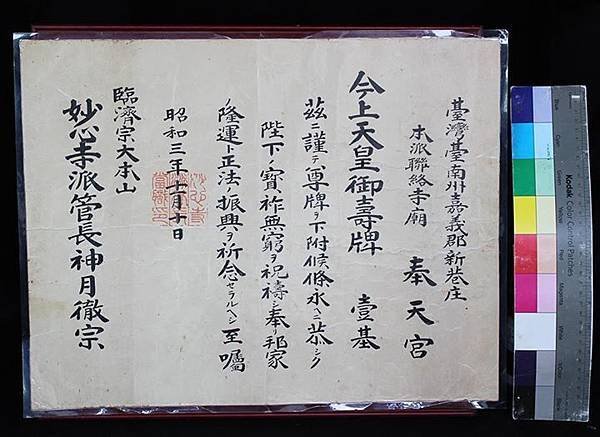 臺灣臺南州嘉義郡新巷庄
本派聯絡寺廟 奉天宮
今上天皇御壽牌 壹基
茲ニ謹テ尊牌ヲ下附候條永ヘニ恭シク
陛下ノ寶祚無窮ヲ祝禱シ奉リ邦家
ノ隆運ト正法ノ振興ヲ祈念セラルヘシ至囑
昭和三年十一月十日
臨濟宗大本山
妙心寺派管長神月徹宗
Kodak Color Control Patches
Blue
Cyan
Green
Yellow
Red
Magenta
White